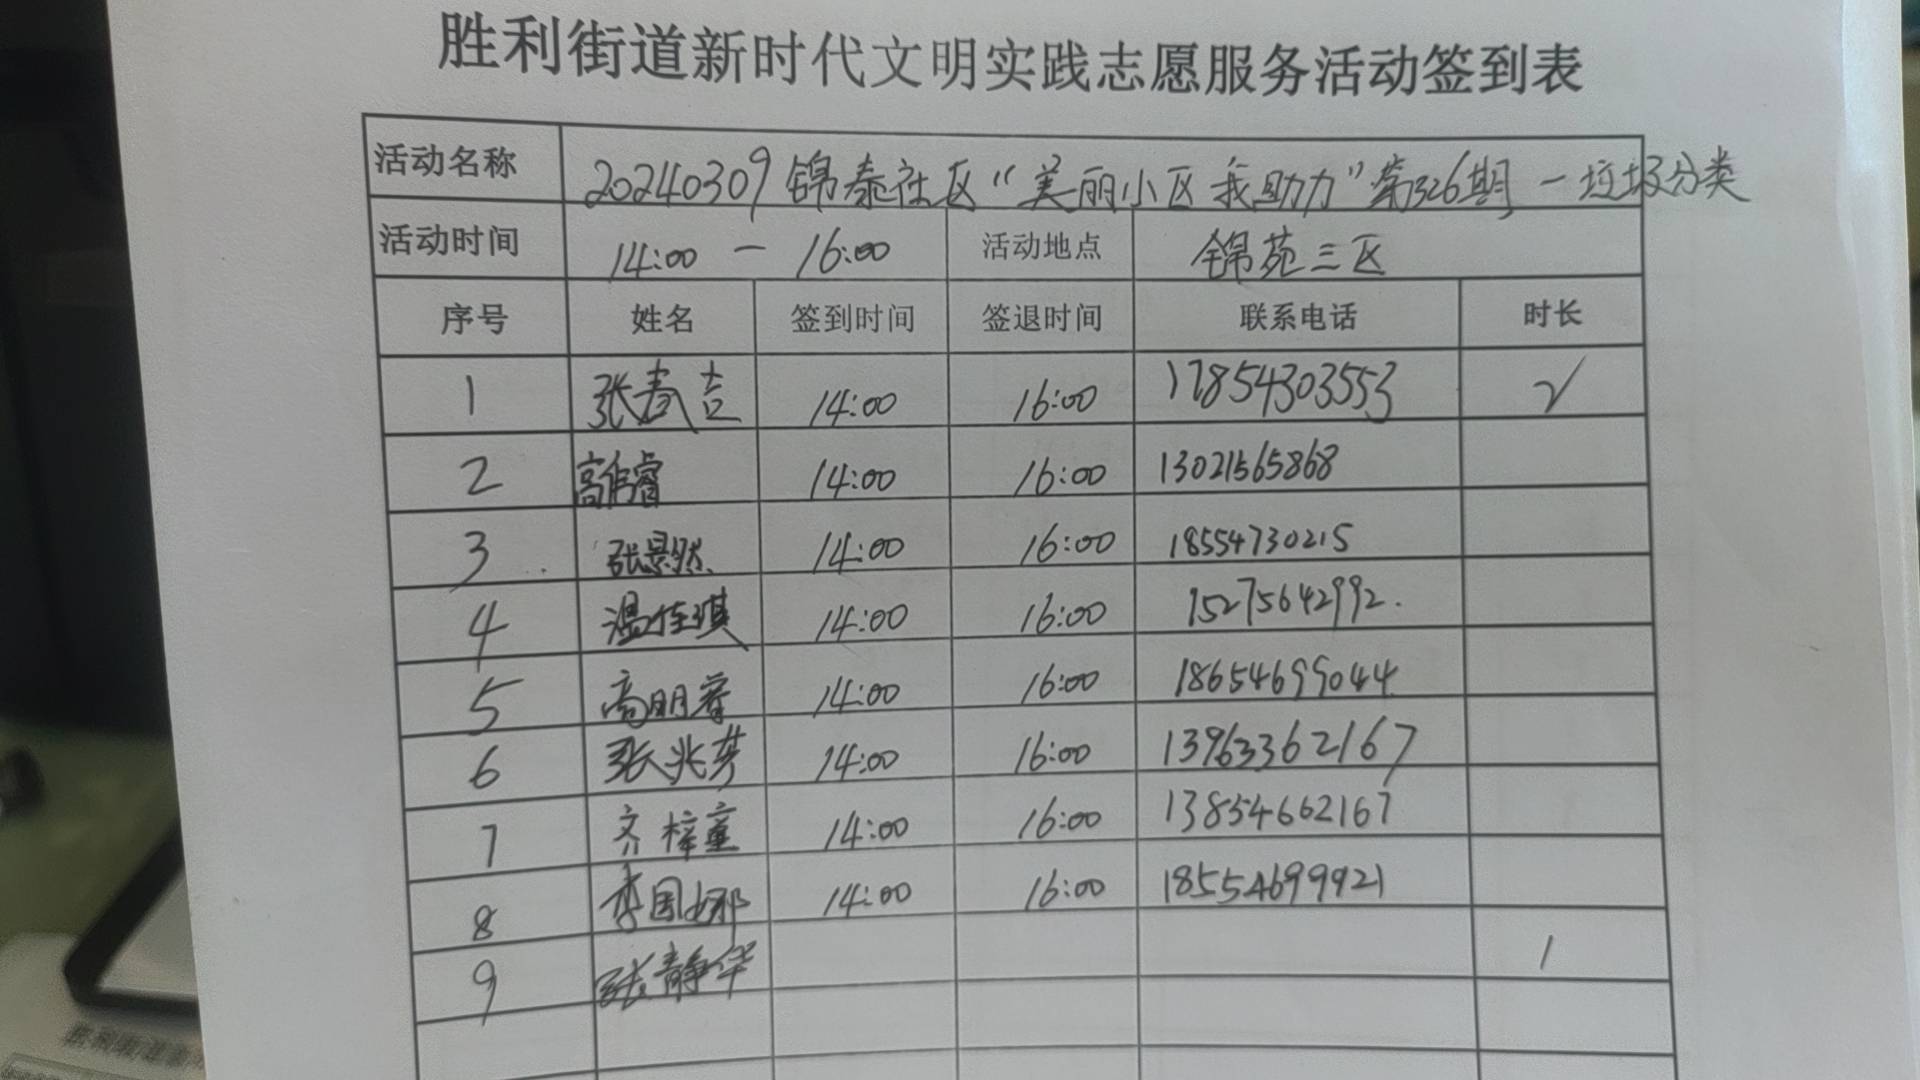 胜利街道新时代文明实践志愿服务活动签到表
活动名称 20240309锦泰社区“美丽小区 我助力”第326期 一 垃圾分类
活动时间 14:00 — 16:00 活动地点 锦苑三区
序号 姓名 签到时间 签退时间 联系电话 时长
1 张春吉 14:00 16:00 17854303553 √
2 高伟睿 14:00 16:00 13021565868
3 张景然 14:00 16:00 18554730215
4 温佳琪 14:00 16:00 15275642992.
5 高明睿 14:00 16:00 18654699044
6 张兆芬 14:00 16:00 13963362167
7 齐梓童 14:00 16:00 13854662167
8 李国娜 14:00 16:00 18554699921
9 张静华 1